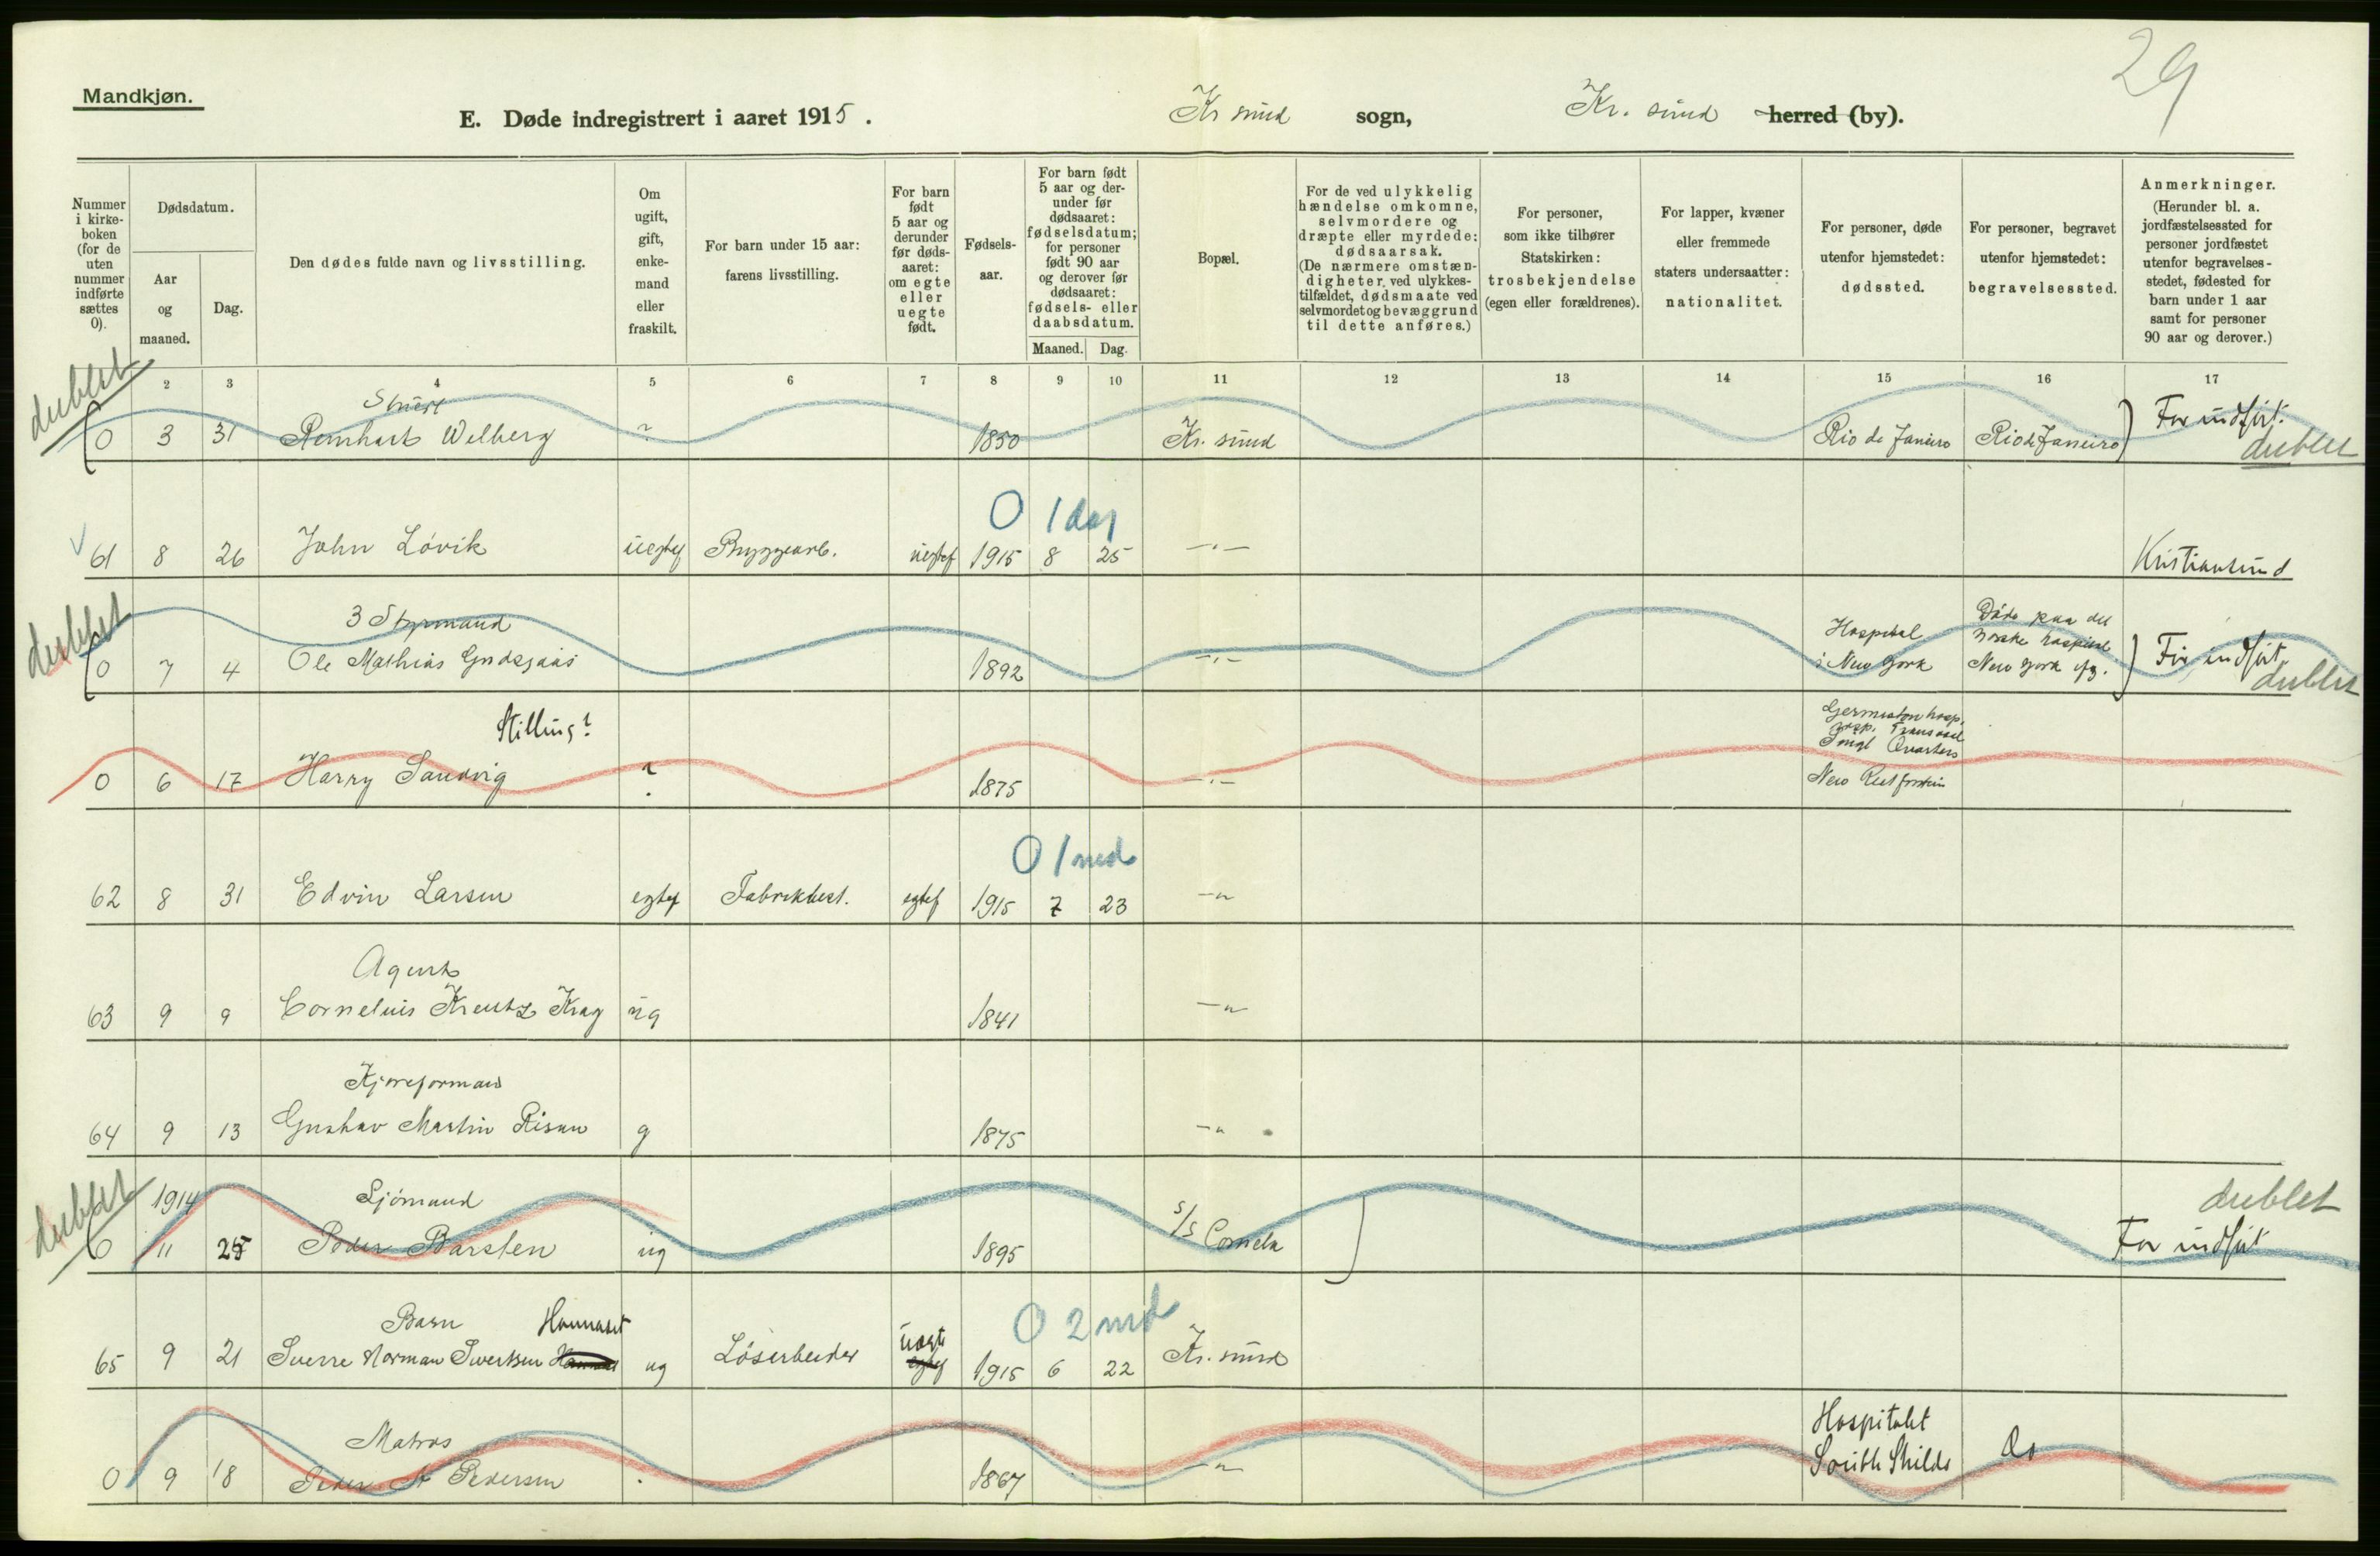 29
Mandkjøn.
E. Døde indregistrert i aaret 1915. Kr sund sogn, Kr. sund herred (by).
Nummer i kirke-boken (for de uten nummer indførte sættes 0).
Dødsdatum.
Aar og maaned.
Dag.
Den dødes fulde navn og livsstilling.
Om ugift, gift, enke-mand eller fraskilt.
For barn under 15 aar: farens livsstilling.
For barn født 5 aar og derunder før døds-aaret: om egte eller uegte født.
Fødsels-aar.
For barn født 5 aar og der-under før dødsaaret: fødselsdatum; for personer født 90 aar og derover før dødsaaret: fødsels- eller daabsdatum.
Maaned. Dag.
Bopæl.
For de ved ulykkelig hændelse omkomne, selvmordere og dræpte eller myrdede: dødsaarsak. (De nærmere omstæn-digheter ved ulykkes-tilfældet, dødsmaate ved selvmordet og bevæggrund til dette anføres.)
For personer, som ikke tilhører Statskirken: trosbekjendelse (egen eller forældrenes).
For lapper, kvæner eller fremmede staters undersaatter: nationalitet.
For personer, døde utenfor hjemstedet: dødssted.
For personer, begravet utenfor hjemstedet: begravelsessted.
Anmerkninger. (Herunder bl. a. jordfæstelsessted for personer jordfæstet utenfor begravelses-stedet, fødested for barn under 1 aar samt for personer 90 aar og derover.)
2 3 4 5 6 7 8 9 10 11 12 13 14 15 16 17
dublet
Stuert
0 3 31 Reinhart Welberg ? 1850 Kr. sund Rio de Janeiro Rio de Janeiro) Før indført.
dublet
0 1 dag
61 8 26 John Løvik uegtef Bryggearb. uegtef 1915 8 25 —"— Kristiansund
dublet
3 Styrmand
0 7 4 Ole Mathias 1892 —"— Hospital i New York Døde paa det norske hospital New York ) Før indført
dublet
Stilling?
0 6 17 Harry Sandvig ? 1875 —"— Germiston hosp. Transvaal Quarters
New
0 1 md
62 8 31 Edvin Larsen egtef Fabrikbest. egtef 1915 7 23 —"
Agent
63 9 9 Cornelius Kreutz Krag ug 1841 —"
Kjøreformand
64 9 13 Gustav Martin Risan g 1875 —"
dublet
1914 Sjømand
0 11 25 Peder Barsten ug 1895 s/s Cornelia Før indført
dublet
0 2 md
Barn Hannaset
65 9 21 Sverre Norman Sivertsen ug Løsarbeider uegte egtef 1915 6 22 Kr. sund
Matros
0 9 18 Peder A Pedersen . 1867 —" Hospitalet South Shilds Do